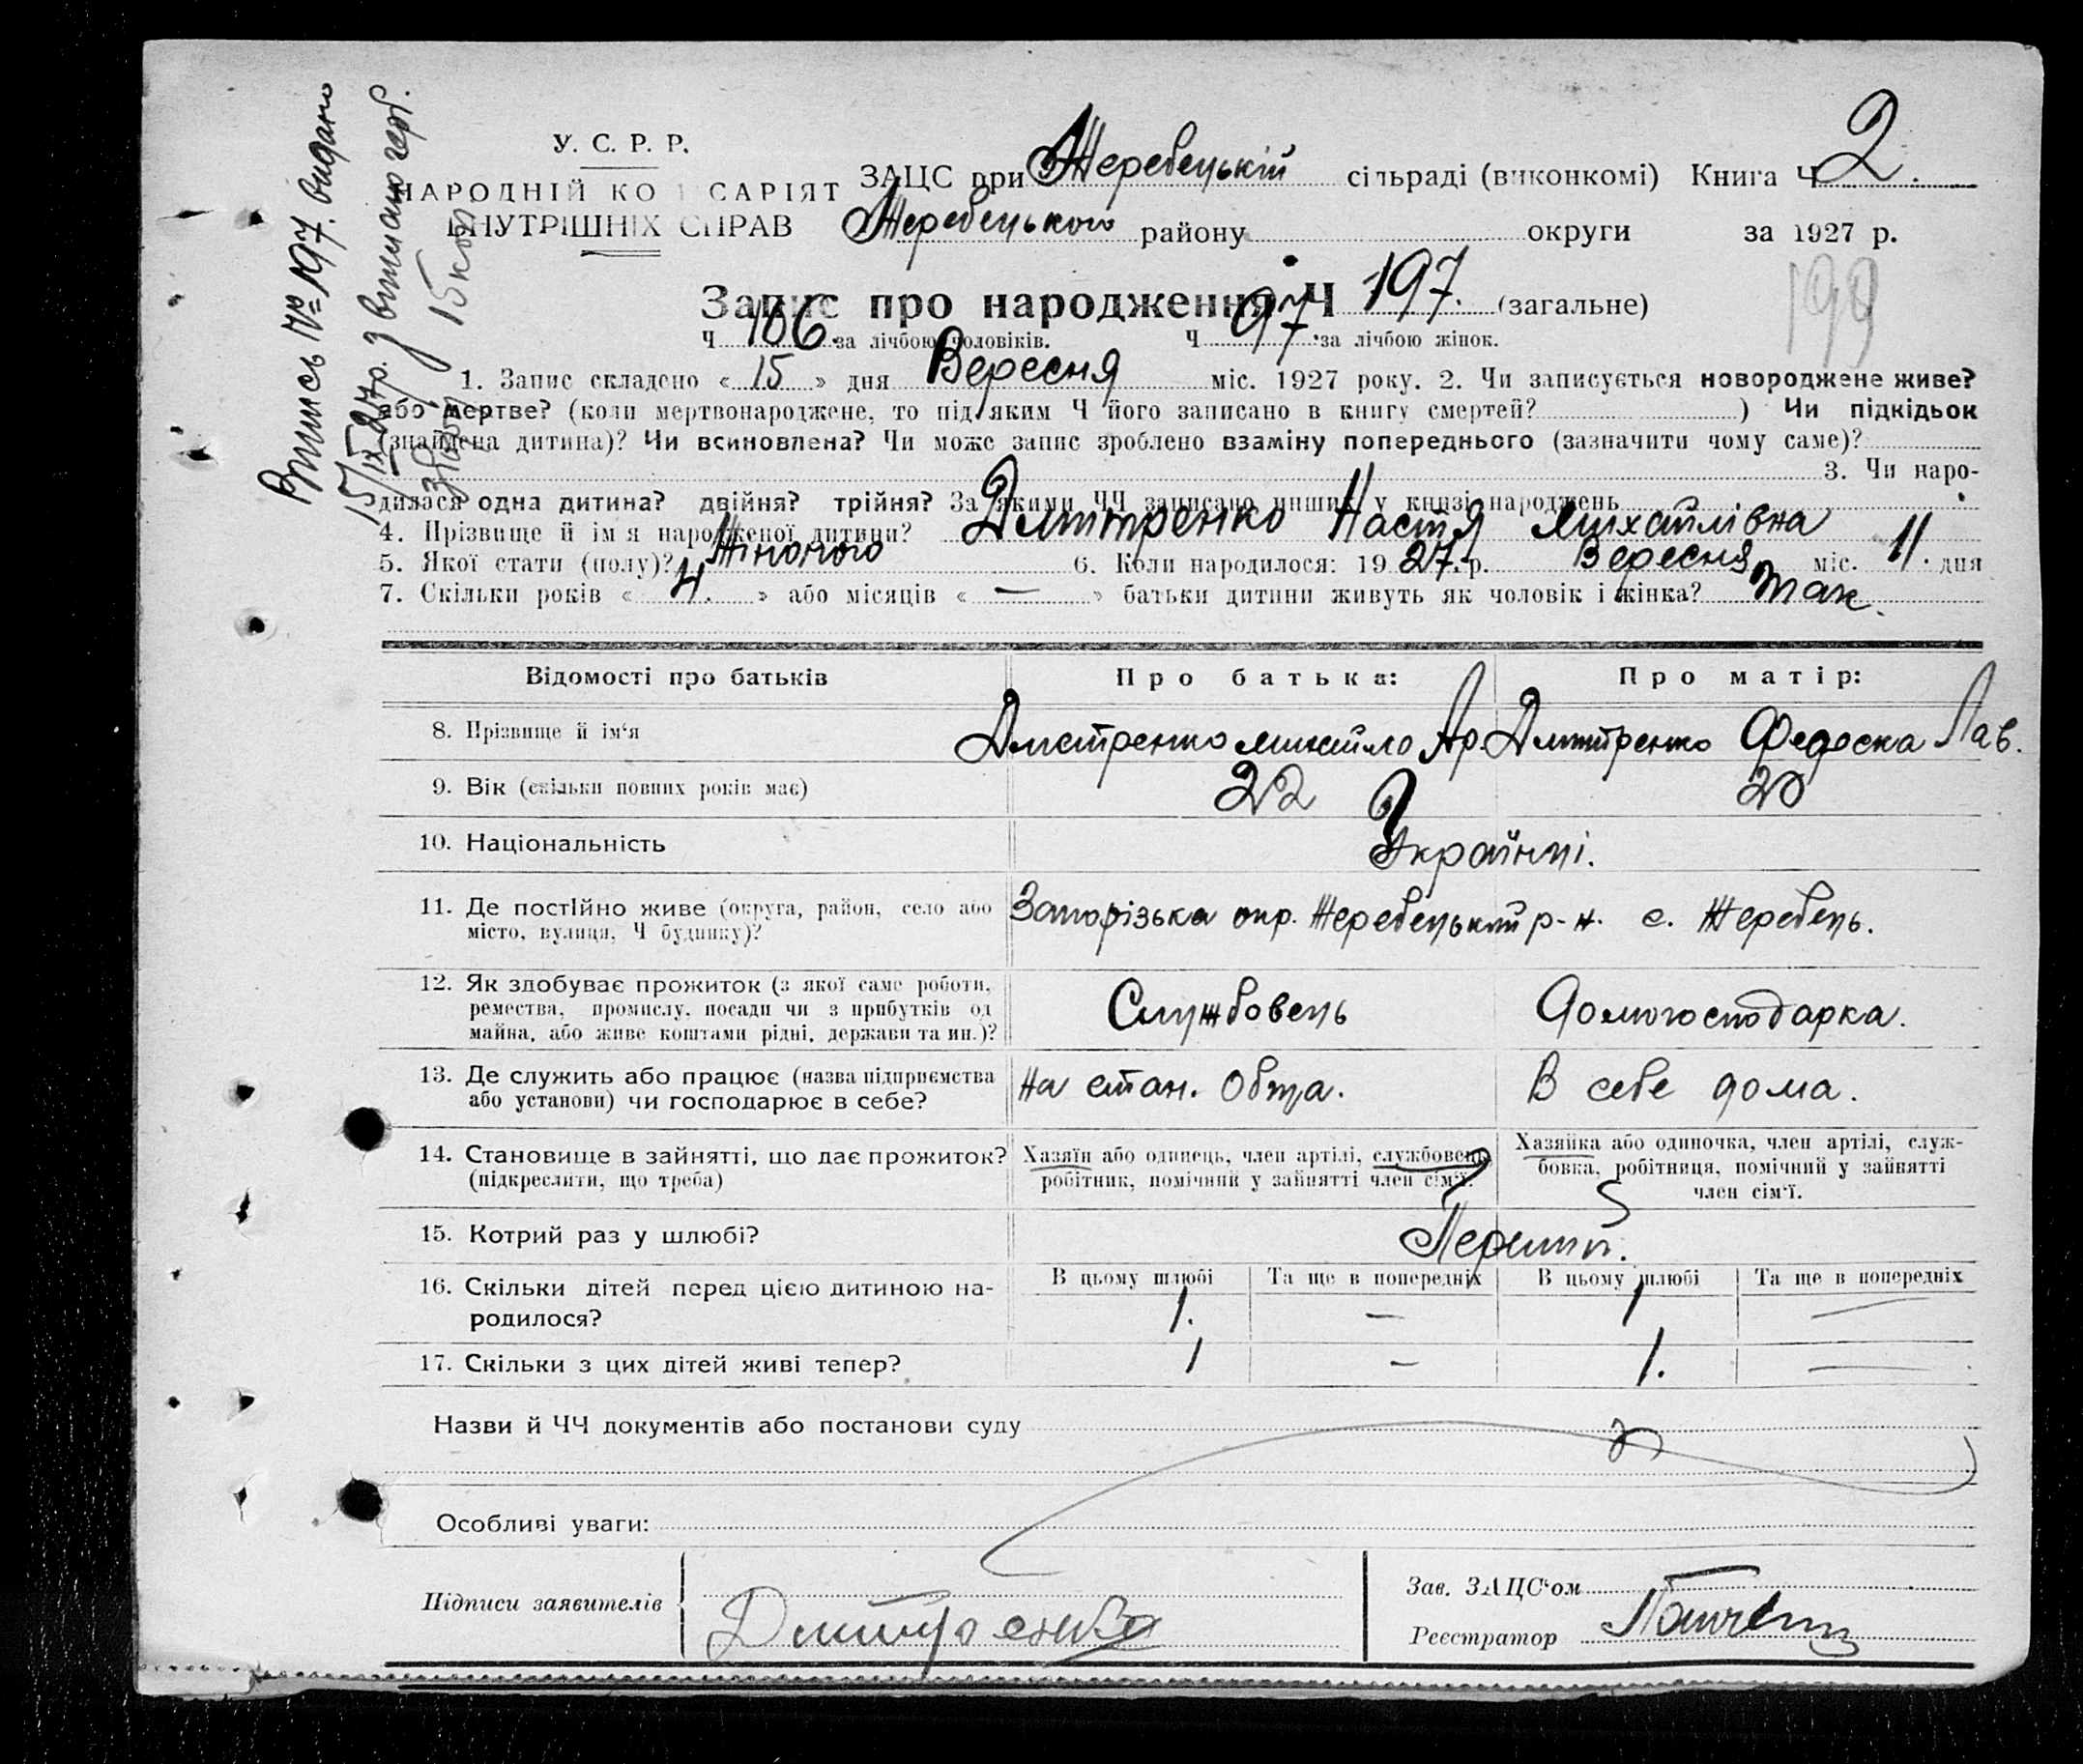 Випись № 197. видано
15/IX 27 р. з витманю герб.
збору 15 коп
У. С. Р. Р.
НАРОДНІЙ КОМІСАРІЯТ
ВНУТРІШНІХ СПРАВ
ЗАЦС при Жеребецькій сільраді (виконкомі) Книга Ч 2.
Жеребецького району округи за 1927 р.
Запис про народження Ч 197. (загальне)
199
Ч 106 за лічбою чоловіків. Ч 97 за лічбою жінок.
1. Запис складено « 15 » дня Вересня міс. 1927 року. 2. Чи записується новороджене живе?
або мертве? (коли мертвонароджене, то під яким Ч його записано в книгу смертей? ) Чи підкідьок
(знайдена дитина)? Чи всиновлена? Чи може запис зроблено взаміну попереднього (зазначити чому саме)?
3. Чи наро-
дилася одна дитина? двійня? трійня? За якими ЧЧ записано инших у книзі народжень
4. Прізвище й ім'я народженої дитини? Дмитренко Настя Михайлівна
5. Якої стати (полу)? Жіночого 6. Коли народилося: 1927 р. Вересня міс. 11. дня
7. Скільки років « 4. » або місяців « — » батьки дитини живуть як чоловік і жінка? Так.
Відомості про батьків Про батька: Про матір:
8. Прізвище й ім'я Дмитренко Михайло Ар. Дмитренко Федоска Лав.
9. Вік (скільки повних років має) 22 20
10. Національність Українці.
11. Де постійно живе (округа, район, село або Запорізька окр. Жеребецький р-н. с. Жеребець.
місто, вулиця, Ч будинку)?
12. Як здобуває прожиток (з якої саме роботи, Службовець Домогосподарка.
ремества, промислу, посади чи з прибутків од
майна, або живе коштами рідні, держави та ин.)?
13. Де служить або працює (назва підприємства На стан. Обща. В себе дома.
або установи) чи господарює в себе?
14. Становище в зайнятті, що дає прожиток? Хазяїн або одинець, член артілі, службовець, Хазяйка або одиночка, член артілі, служ-
(підкреслити, що треба) робітник, помічний у зайнятті член сім'ї. бовка, робітниця, помічний у зайнятті
член сім'ї.
15. Котрий раз у шлюбі? Перший.
16. Скільки дітей перед цією дитиною на- В цьому шлюбі Та ще в попередніх В цьому шлюбі Та ще в попередніх
родилося? 1. — 1 —
17. Скільки з цих дітей живі тепер? 1 — 1. —
Назви й ЧЧ документів або постанови суду
Особливі уваги:
Підписи заявителів Дмитренко Зав. ЗАЦС'ом
Реєстратор